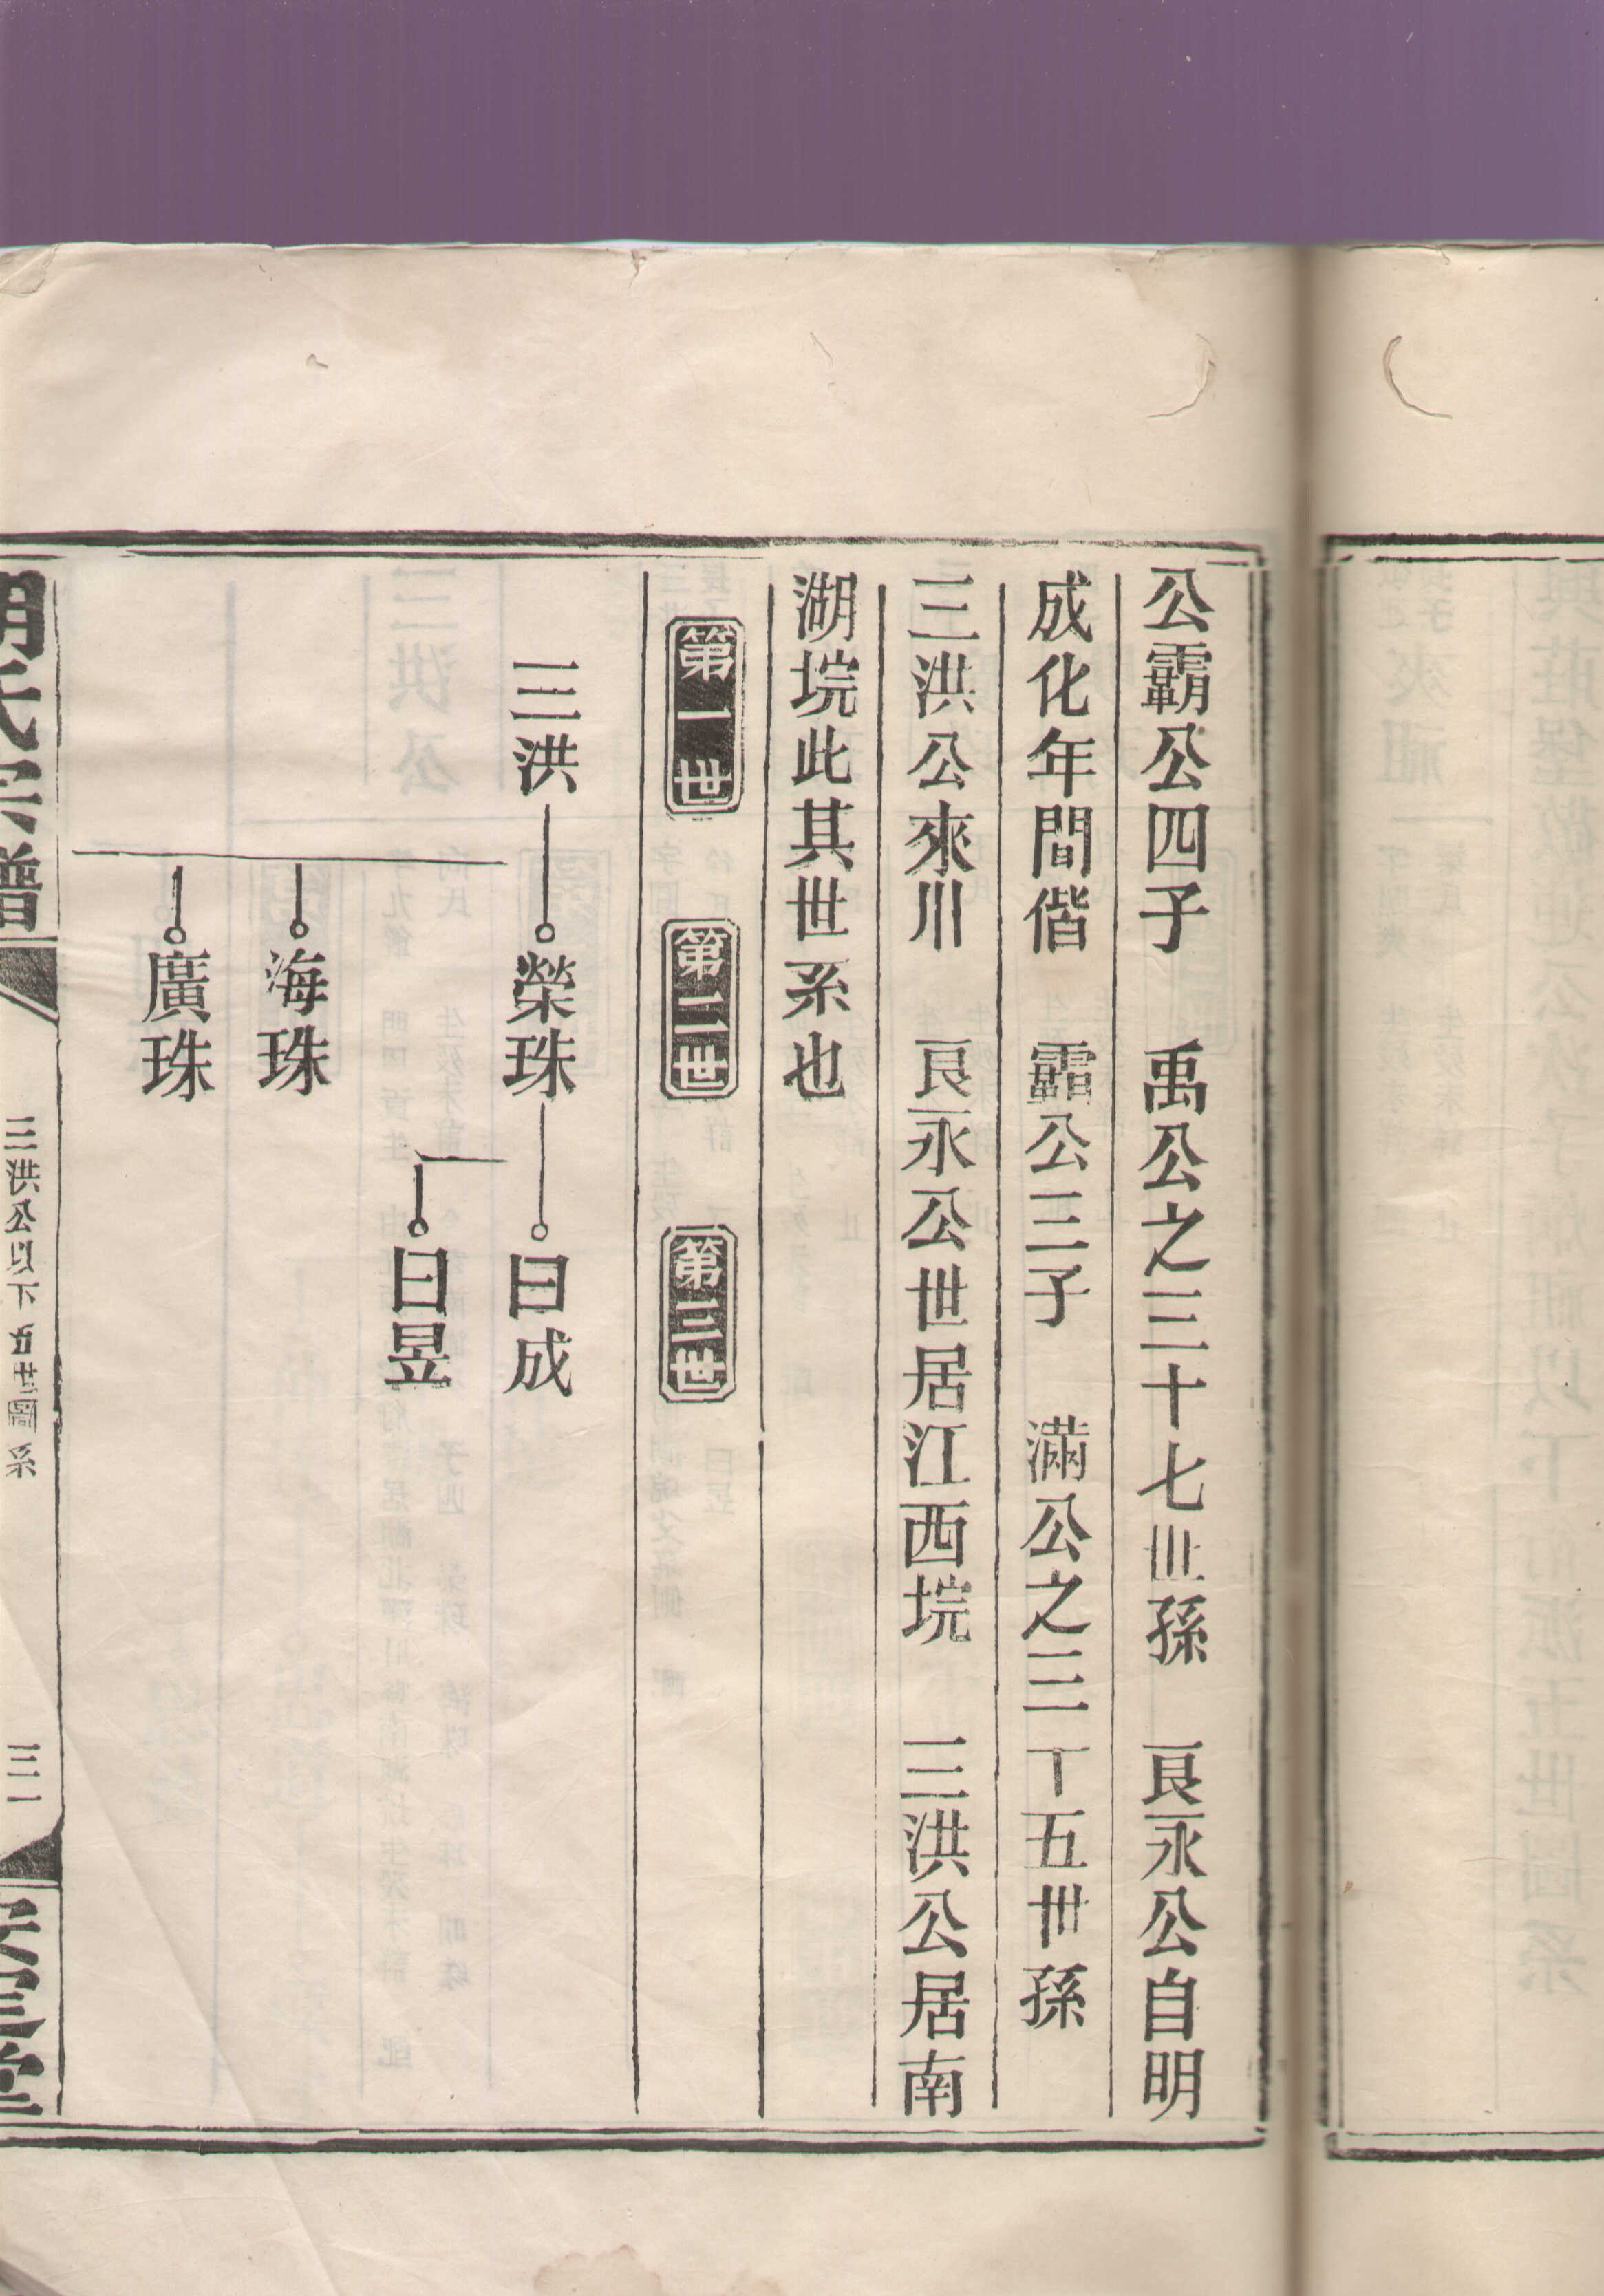 公霸公四子　禹公之三十七世孫　良永公自明
成化年間偕　霸公三子　滿公之三十五世孫
三洪公來川　良永公世居江西垸　三洪公居南
湖垸此其世系也
第一世　第二世　第三世
三洪　榮珠　曰成
曰昱
海珠
廣珠
胡氏宗譜　三洪公以下五世圖系　三一　安定堂